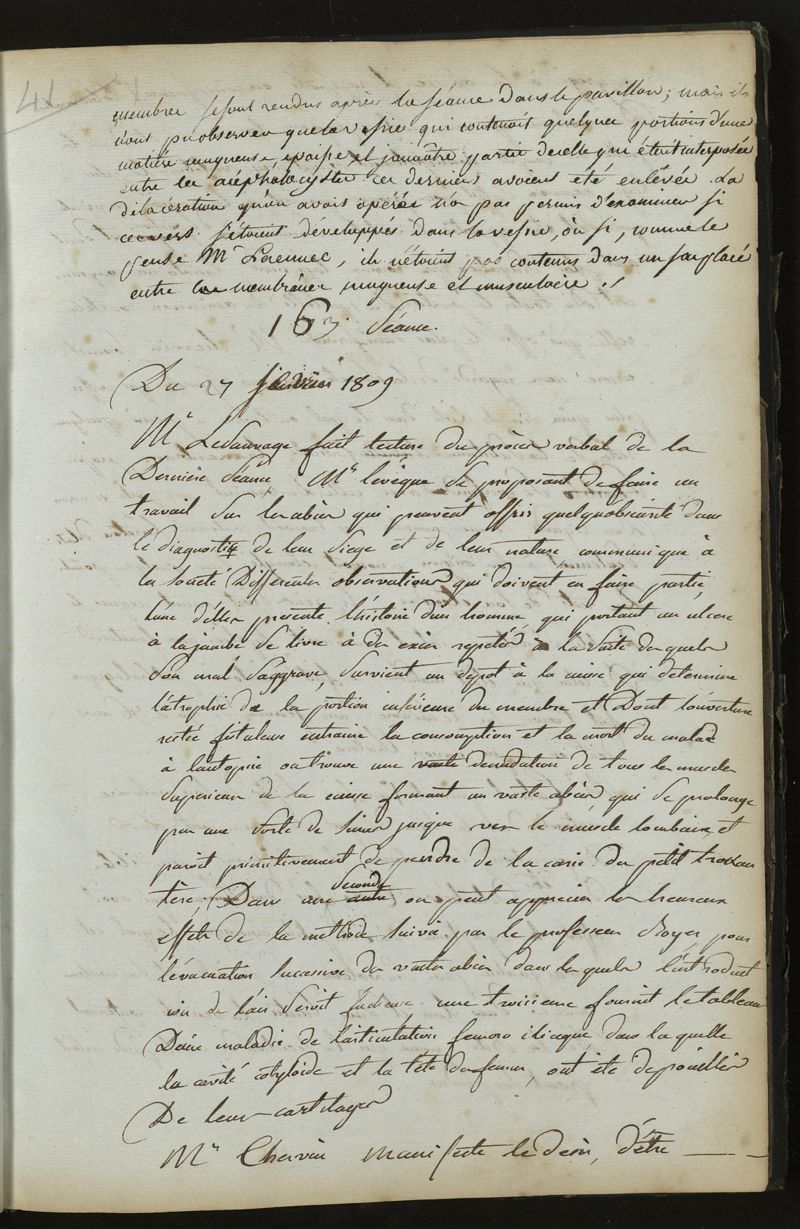 41
membres se sont rendus après la séance dans le pavillon; mais ils
n'ont pu observer que la vessie qui contenoit quelques portions d'une
matière muqueuse, épaisse, et jaunâtre partie de celle qui étoit interposée
entre les acéphalocystes ces derniers avoient été enlevés. La
dilacération qu'on avoit opérée n'a pas permis d'examiner si
ces vers s'étoient développés dans la vessie, où si, comme le
pense Mr Laennec, ils n'étoient pas contenus dans un sac placé
entre les membranes muqueuse et musculaire ./
163. Séance.
Du 27 1809
Mr Lesauvage fait lecture du procès verbal de la
Dernière séance Mr lévêque se proposant de faire un
travail sur les abcès qui peuvent offrir quelqu'obscurité dans
le diagnostic de leur siege et de leur nature communique à
la société Differentes observations qui doivent en faire partie,
l'une d'elles presente l'histoire d'un homme, qui portant un ulcere
à la jambe se livre à des excès repetés à la suite desquels
son mal s'aggrave, survient un depot à la cuisse qui determine
l'atrophie de la portion inférieure du membre et Dont l'ouverture
restée fistuleuse entraine la consomption et la mort du malade
à l'autopsie on trouve une vaste denudation de tous les muscles
superieurs de la cuisse formant un vaste abcès, qui se prolonge
par une sorte de sinus jusque vers les muscles lombaires et
paroit primitivement dependre de la carie du petit trochan
tère, Dans une autre seconde on peut apprecier les heureux
effets de la methode suivie par le professeur Boyer pour
l'évacuation successive des vastes abcès dans lesquels l'introduct
ion de l'air seroit facheuse une troisieme fournit le tableau
D'une maladie de l'articulation femoro iliaque dans laquelle
la cavité cotyloïde et la tête du femur, ont été depouillés
De leurs cartilages
Mr Chervin manifeste le desir, d'être